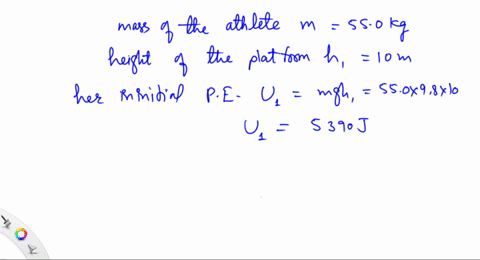 mass of the athlete m = 55.0 kg
height of the platform h₁ = 10 m
her ininitial P.E. U₁ = mgh₁ = 55.0×9.8×10
U₁ = 5390J